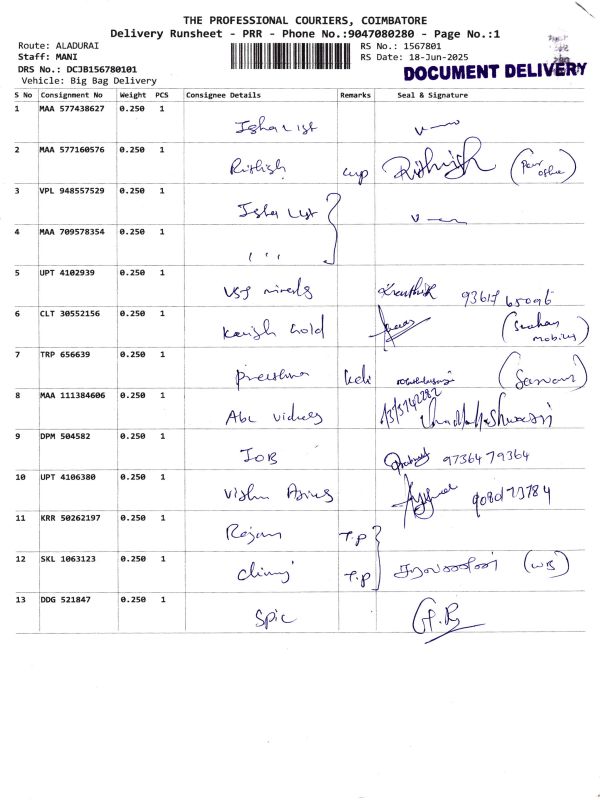 THE PROFESSIONAL COURIERS, COIMBATORE
Delivery Runsheet - PRR - Phone No.:9047080280 - Page No.:1
Route: ALADURAI
Staff: MANI
DRS No.: DCJB156780101
Vehicle: Big Bag Delivery
RS No.: 1567801
RS Date: 18-Jun-2025
DOCUMENT DELIVERY
S No Consignment No Weight PCS Consignee Details Remarks Seal & Signature
1 MAA 577438627 0.250 1 Isha List
2 MAA 577160576 0.250 1 Rithish Rithish
3 VPL 948557529 0.250 1 Isha List
4 MAA 709578354 0.250 1 ' ' '
5 UPT 4102939 0.250 1 Karthik 93617 65096
6 CLT 30552156 0.250 1 Gold
7 TRP 656639 0.250 1
8 MAA 111384606 0.250 1 Abi
9 DPM 504582 0.250 1 IOB 97364 79364
10 UPT 4106380 0.250 1 Vishnu
11 KRR 50262197 0.250 1 Rajan T.P
12 SKL 1063123 0.250 1 T.P சரவணன்
13 DDG 521847 0.250 1 Spic